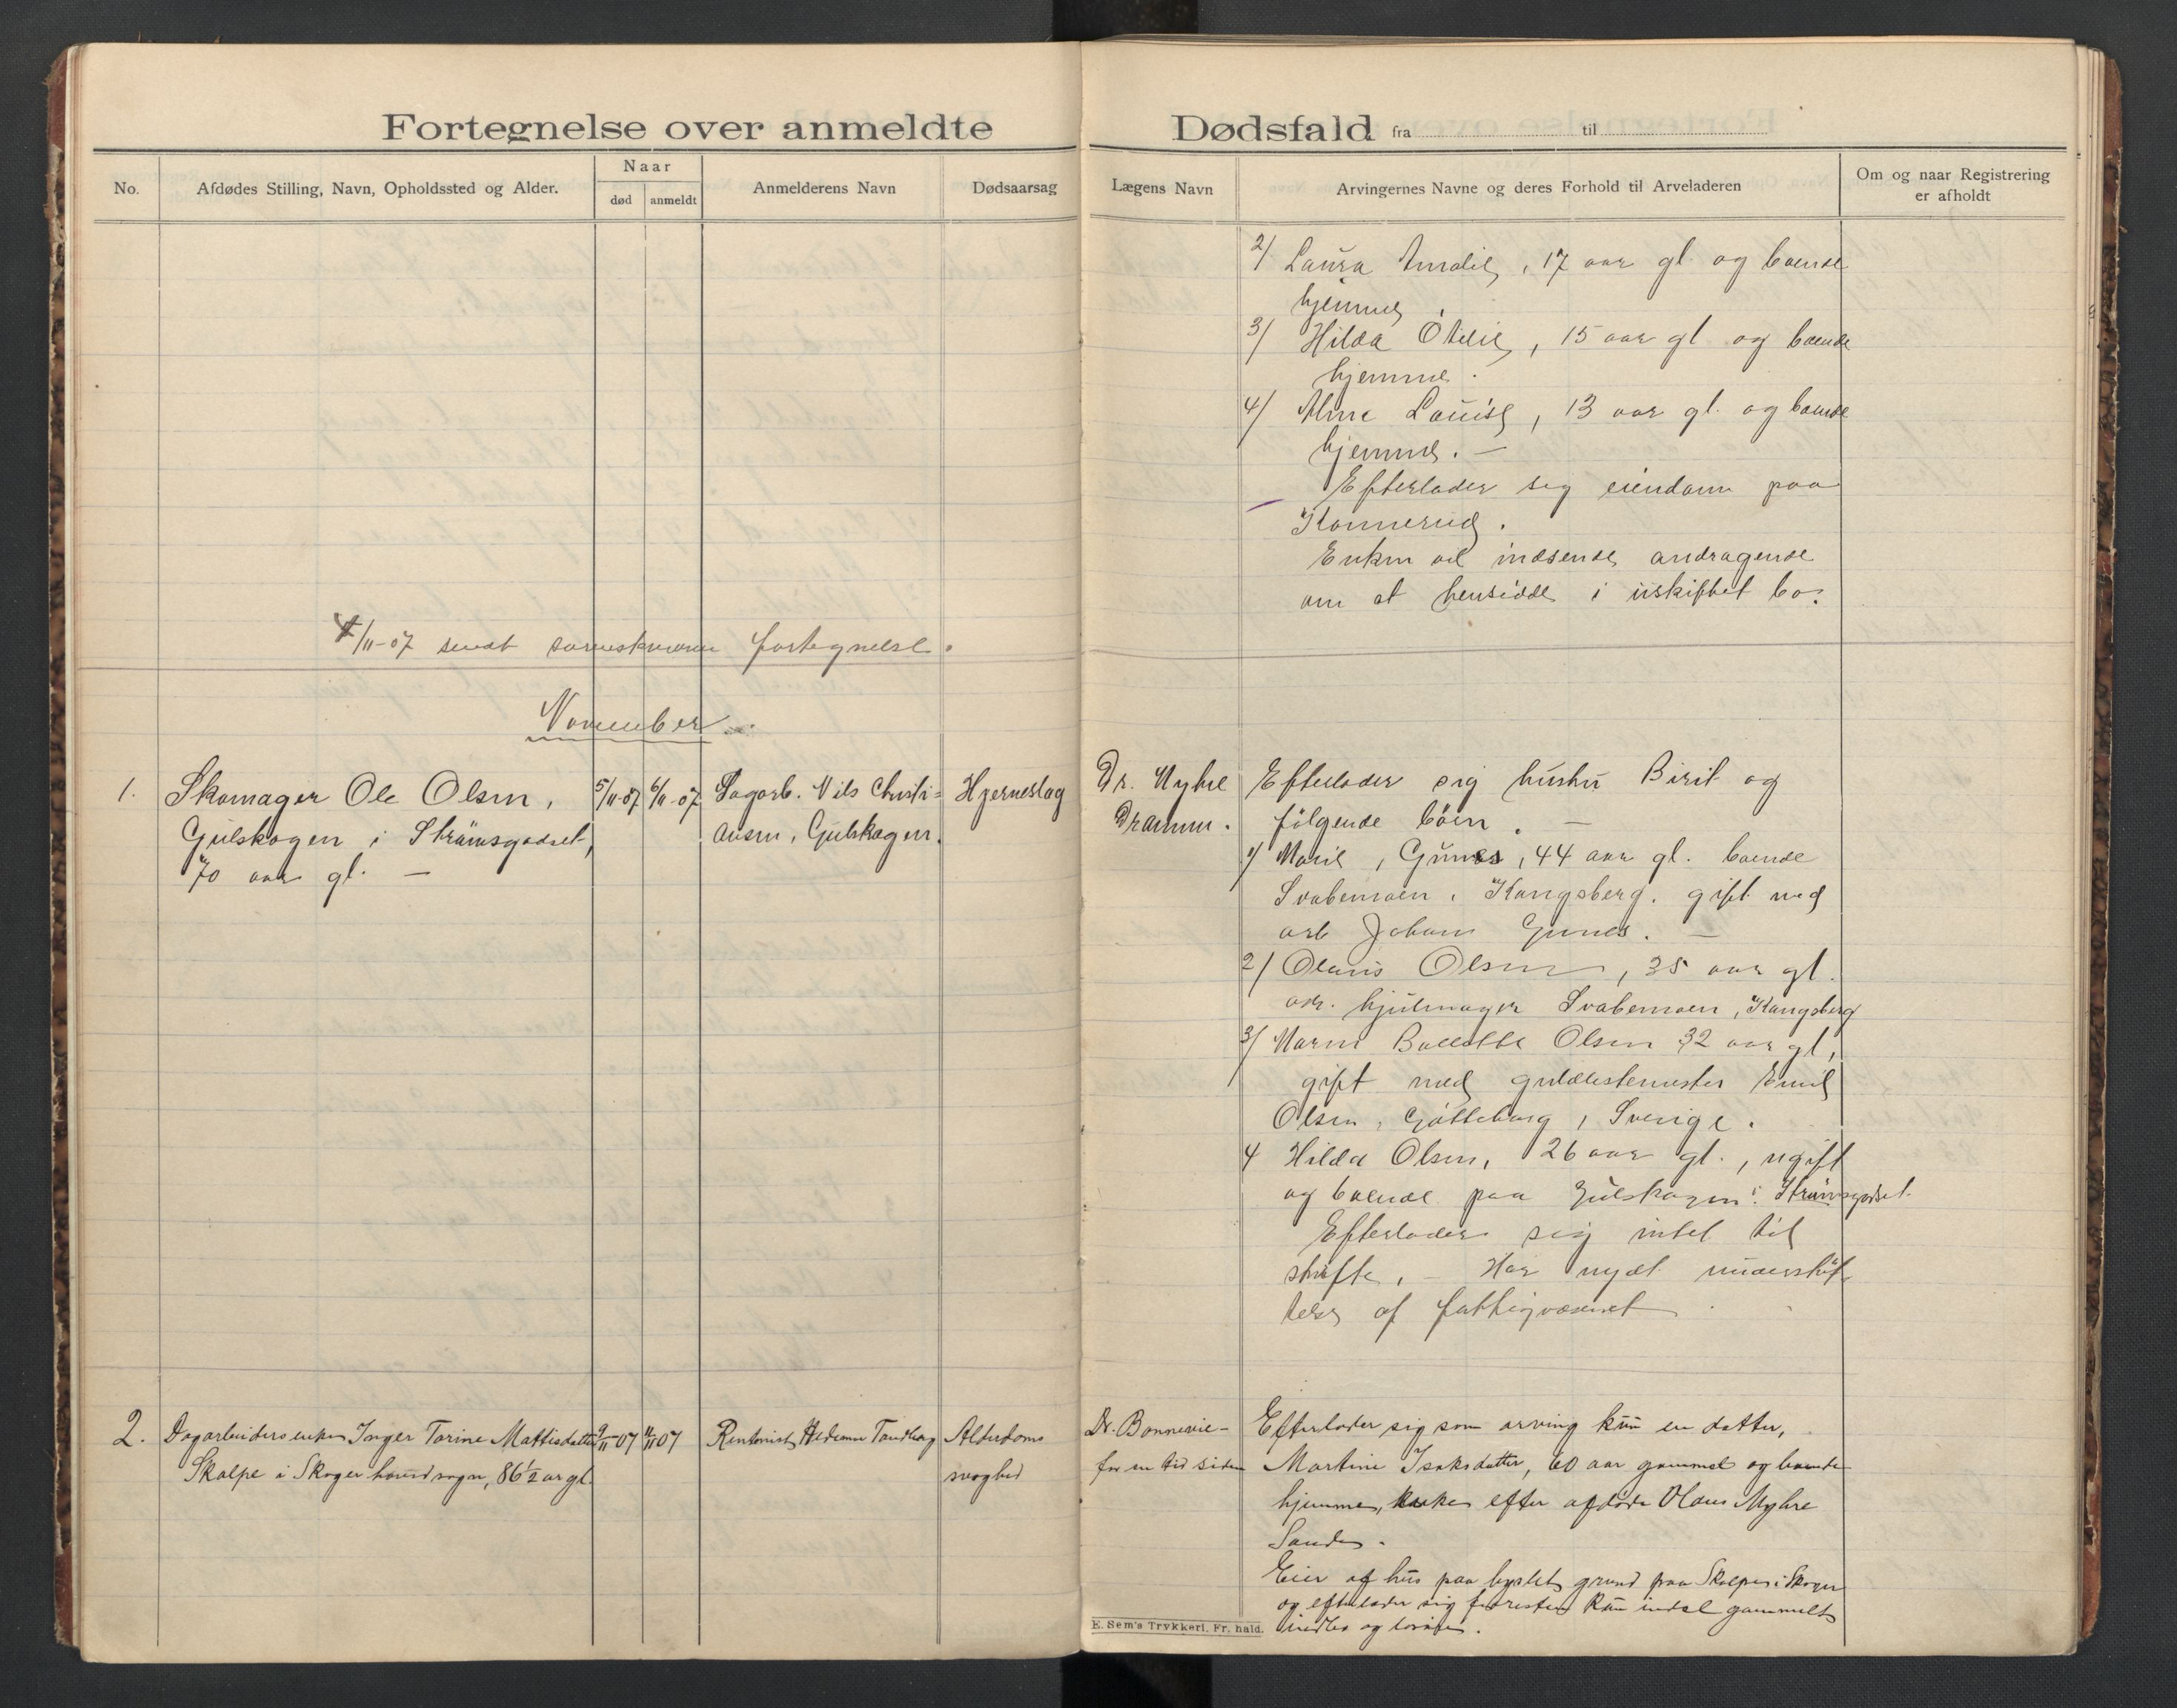 Fortegnelse over anmeldte
Dødsfald fra til
No.
Afdødes Stilling, Navn, Opholdssted og Alder.
Naar
død
anmeldt
Anmelderens Navn
Dødsaarsag
Lægens Navn
Arvingernes Navne og deres Forhold til Arveladeren
Om og naar Registrering
er afholdt
2/ Laura Amalie, 17 aar gl. og boende
hjemme,
3/ Hilda Otilie, 15 aar gl og boende
hjemme.
4/ Aline Louise, 13 aar gl. og boende
hjemme. —
Efterlader sig eiendom paa
Konnerud.
Enken vil indsende andragende
om at hensidde i uskiftet bo.
/11-07 sendt sorenskriveren fortegnelse.
November
1.
Skomager Ole Olsen,
Gulskogen i Strømsgodset,
70 aar gl. —
5/11-07
6/11-07
Sagarb. Nils Christi=
ansen, Gulskogen.
Hjerneslag
Dr. Myhre
Drammen.
Efterlader sig hustru Birit og
følgende børn. —
1/ Marie, Gunes, 44 aar gl. boende
Svabemoen, Kongsberg. gift med
arb Johan Gunes. —
2/ Olaus Olsen, 35 aar gl.
hjulmager Svabemoen, Kongsberg
3/ Olsen 32 aar gl,
gift med Emil
Olsen, Gøtteborg, Sverige.
4 Hilda Olsen, 26 aar gl., ugift
og boende paa Gulskogen i Strømsgodset.
Efterlader sig intet til
skifte, — Har nydt understøt
telse af fattigvæsenet
2.
Dagarbeidersenke Inger Torine Mattisdatter
Skalpe i Skoger hovedsogn, 86 1/2 ar gl.
9/11-07
11/11 07
Tandberg
Alderdoms
svaghed
Dr. Bonnevie -
for en tid siden
Efterlader sig som arving kun en datter,
Martine Isaksdatter, 60 aar gammel og boende
hjemme, enke efter afdøde Olaus Myhre
Sande.
Eier af hus paa bygslet grund paa Skalpe i Skoger
og efterlader sig forresten kun endel gammelt
indbo og løsøre.
E. Sem's Trykkeri, Fr. hald.